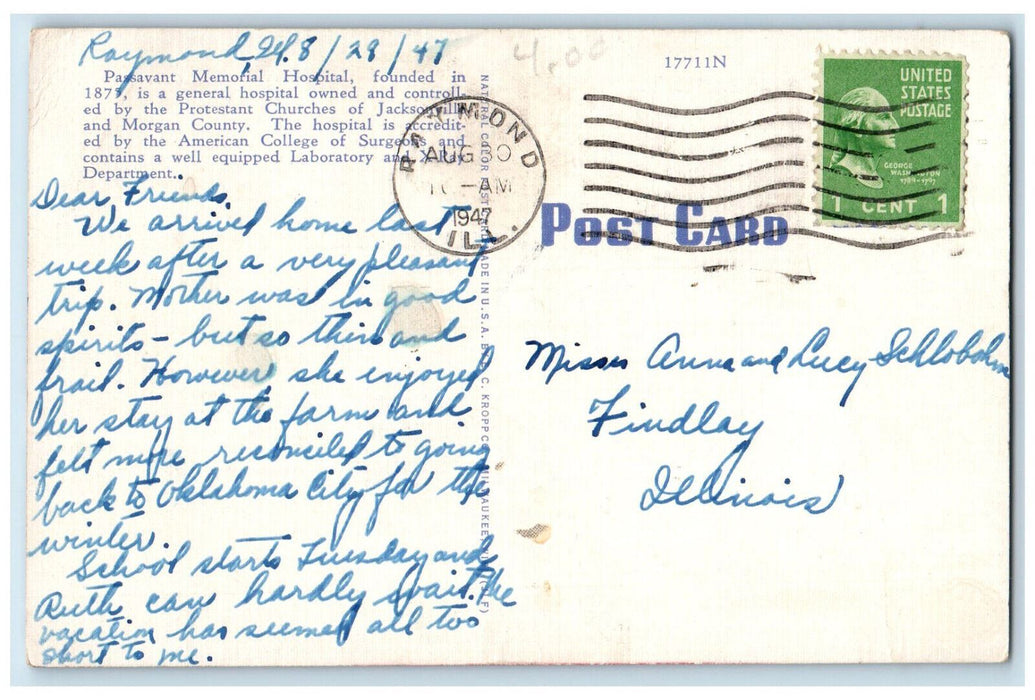 Raymond, Ill. 8/29/47
4.00
17711N
Passavant Memorial Hospital, founded in
1875, is a general hospital owned and controll-
ed by the Protestant Churches of Jacksonville
and Morgan County. The hospital is accredit-
ed by the American College of Surgeons and
contains a well equipped Laboratory and X-Ray
Department.
Dear Friends,
We arrived home last
week after a very pleasant
trip. Mother was in good
spirits – but so thin and
frail. However, she enjoyed
her stay at the farm and
felt more reconciled to going
back to Oklahoma City for the
winter.
School starts Tuesday and
Ruth can hardly wait. The
vacation has seemed all too
short to me.
NATURAL COLOR POST CARD MADE IN U.S.A. BY E. C. KROPP CO. MILWAUKEE
RAYMOND
AUG 30
AM
1947
ILL.
UNITED
STATES
POSTAGE
GEORGE
WASHINGTON
1789-1797
1 CENT 1
POST CARD
Misses Anna and Lucy Schlobohm
Findlay
Illinois